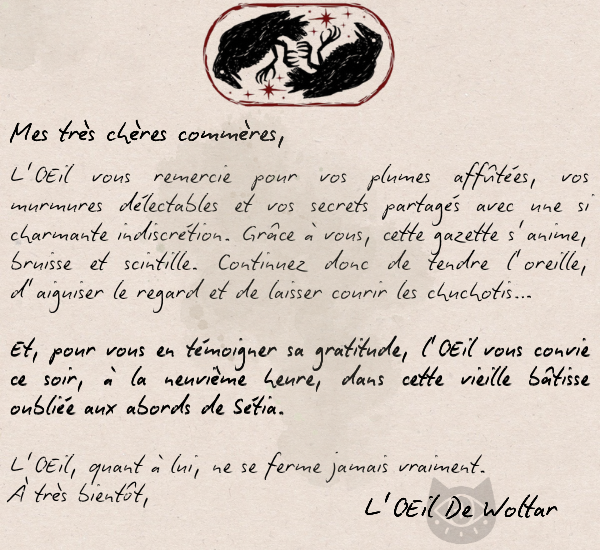 Mes très chères commères,
L'OEil vous remercie pour vos plumes affûtées, vos
murmures délectables et vos secrets partagés avec une si
charmante indiscrétion. Grâce à vous, cette gazette s'anime,
bruisse et scintille. Continuez donc de tendre l'oreille,
d'aiguiser le regard et de laisser courir les chuchotis...
Et, pour vous en témoigner sa gratitude, l'OEil vous convie
ce soir, à la neuvième heure, dans cette vieille bâtisse
oubliée aux abords de Sétia.
L'OEil, quant à lui, ne se ferme jamais vraiment.
À très bientôt,
L'OEil De Woltar